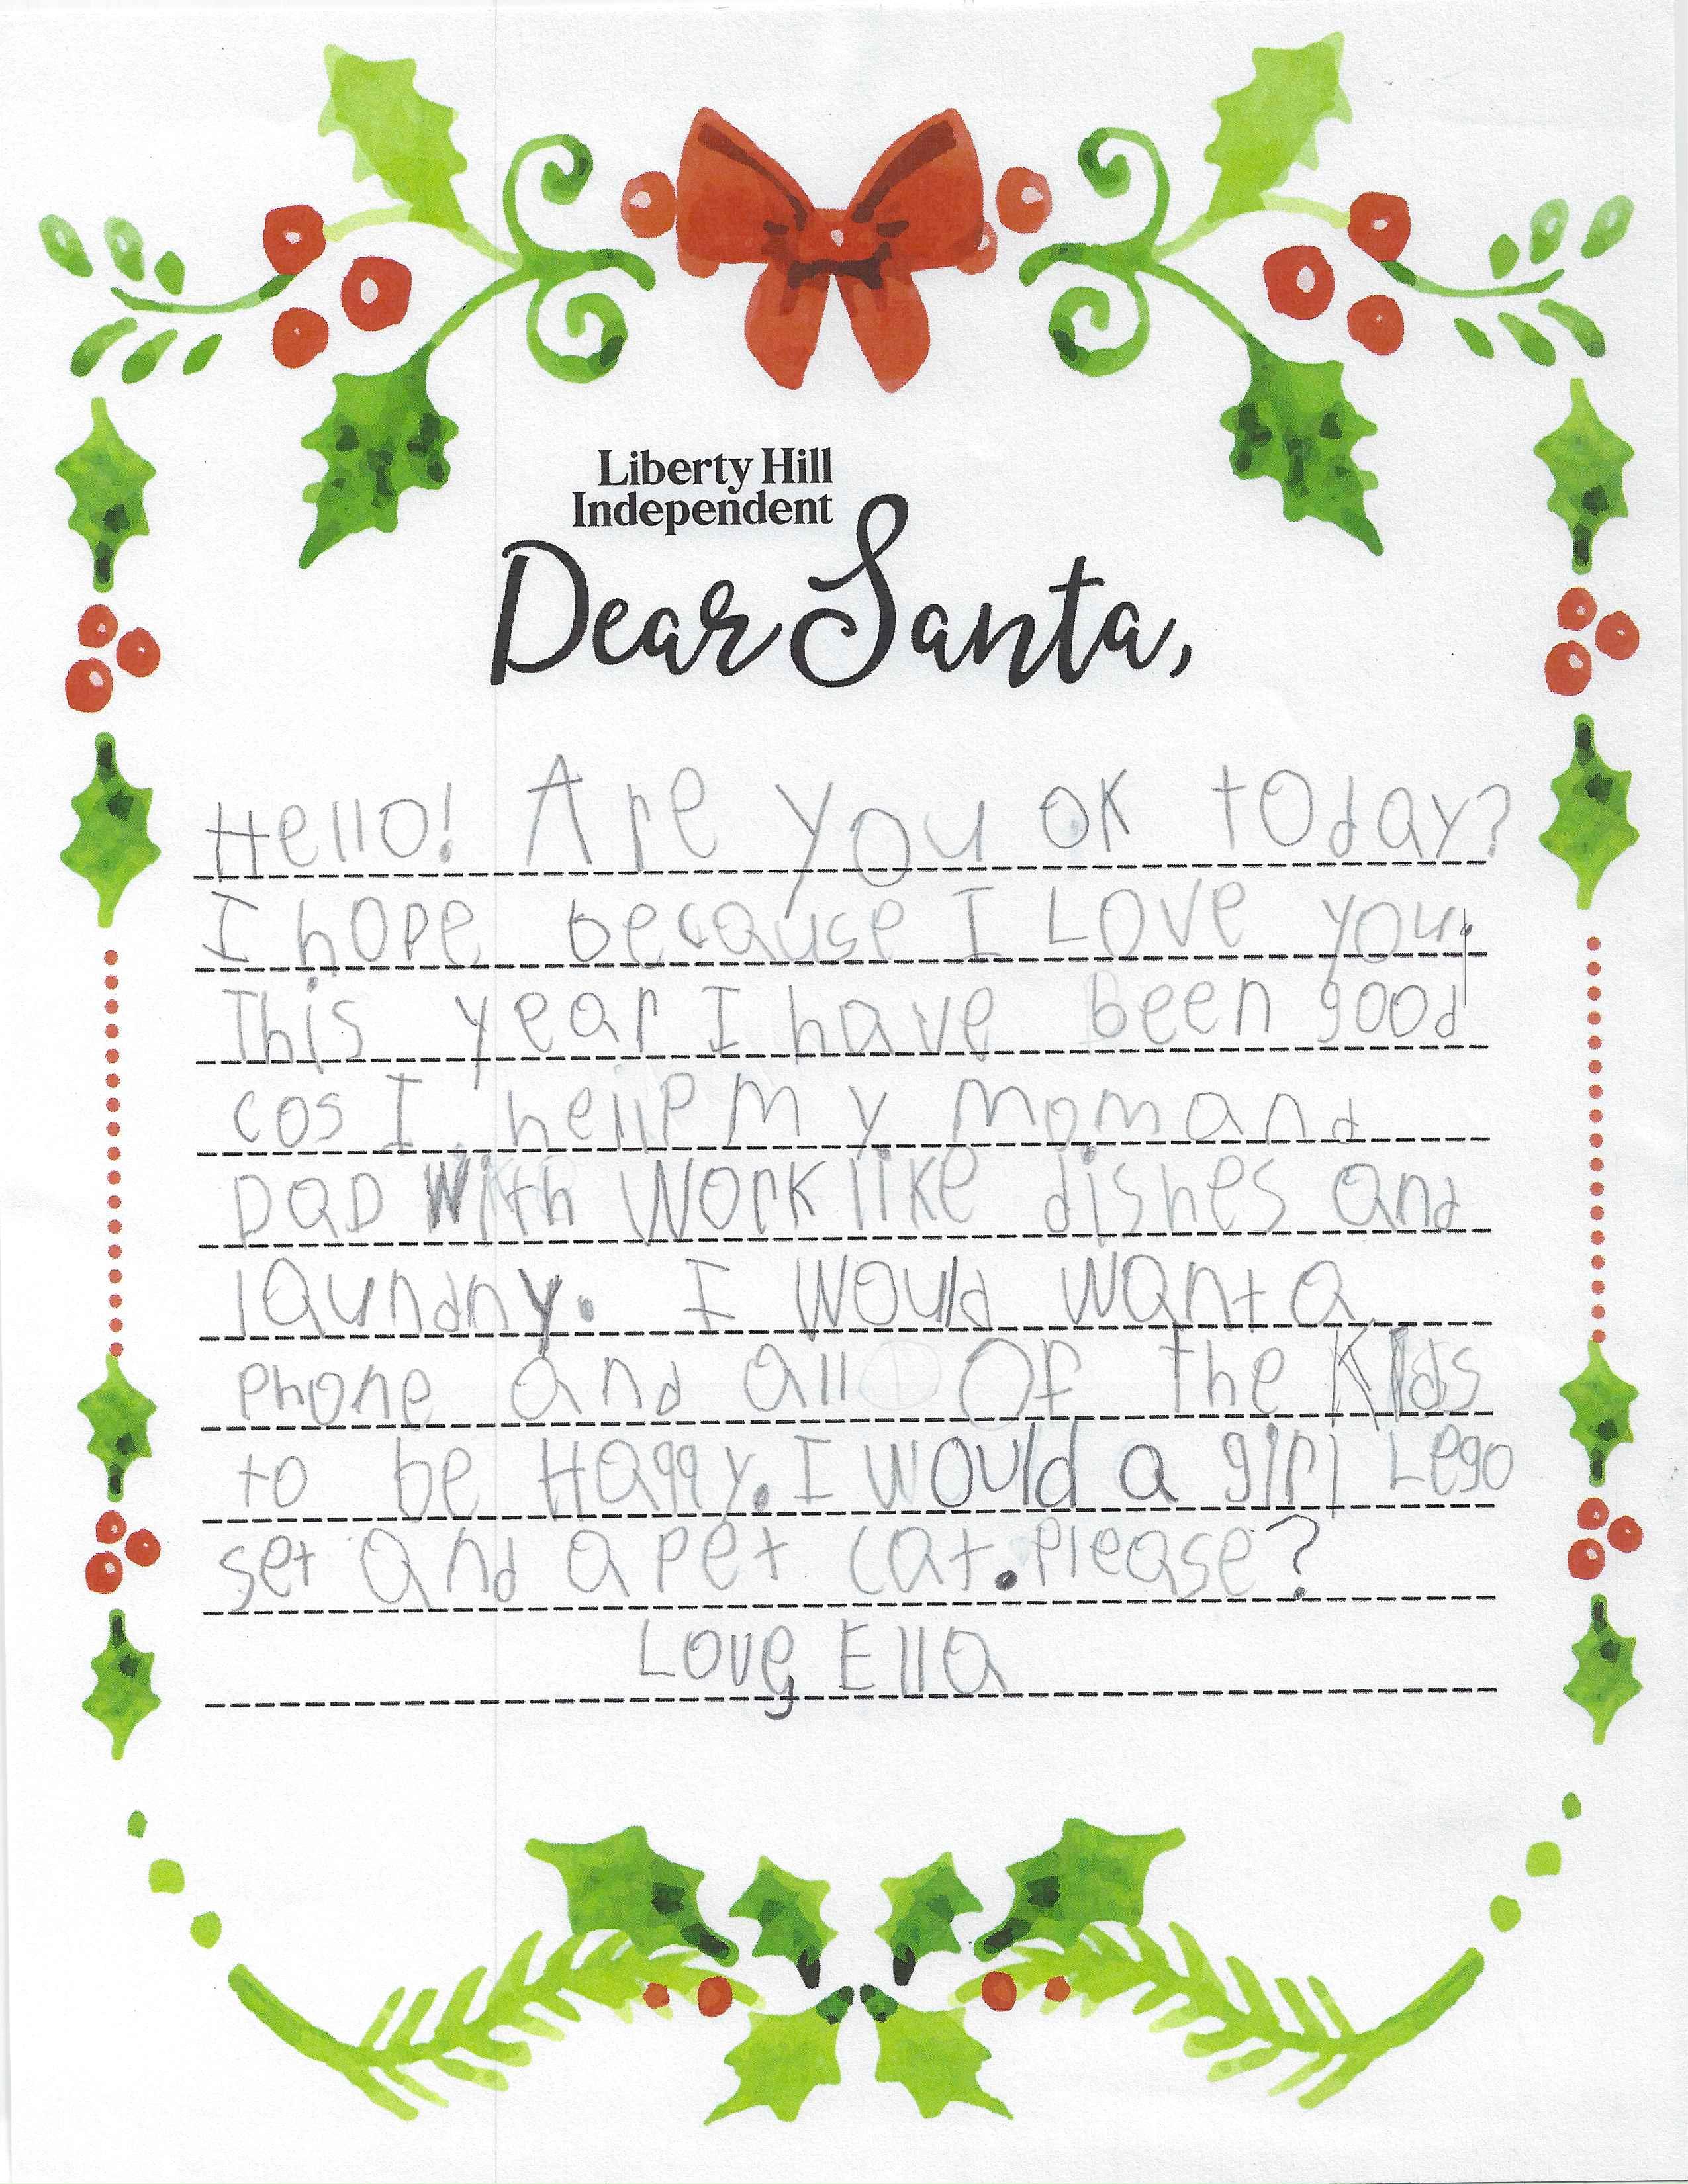 Liberty Hill
Independent
Dear Santa,
Hello! Are you ok today?
I hope because I Love you.
This year I have been good
cos I hellp my mom and
DaD With Work like dishes and
laundny. I Would Want a
Phone and all Of The Kids
to be Happy. I Would a girl Lego
set and a Pet cat. Please?
Love, Ella